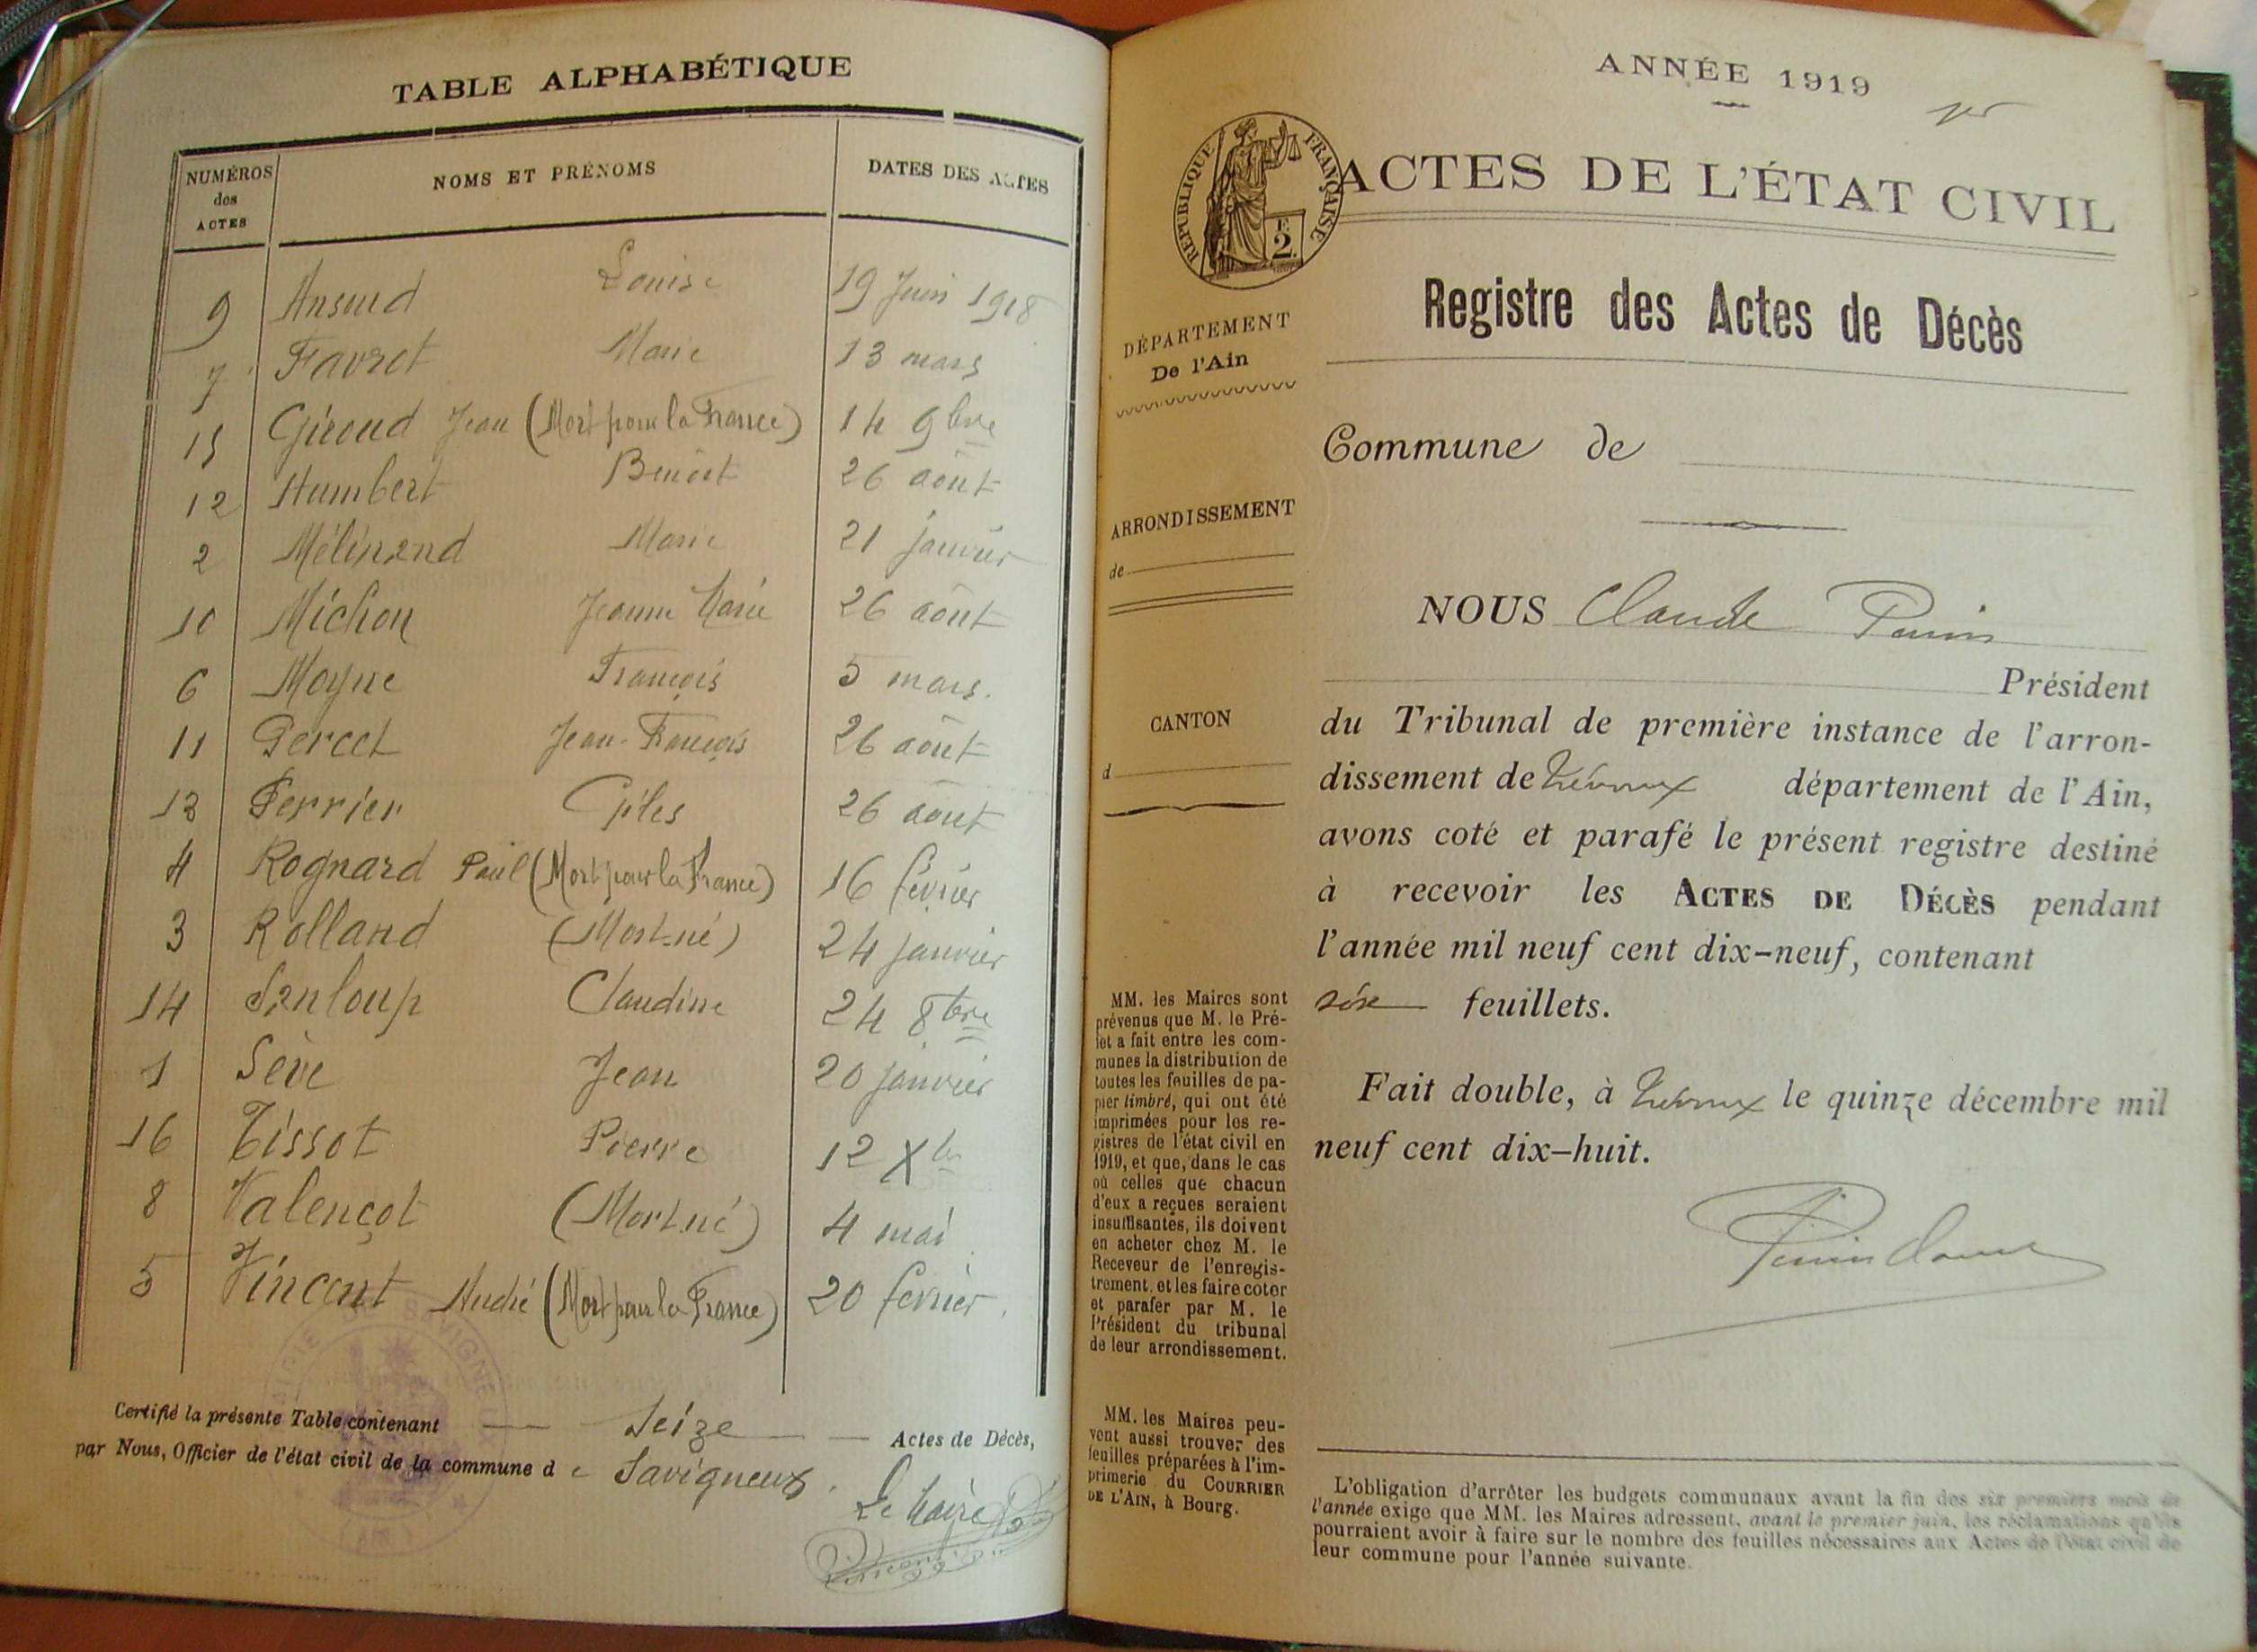 TABLE ALPHABÉTIQUE
NUMÉROS des ACTES NOMS ET PRÉNOMS DATES DES ACTES
9 Ansoud Louise 19 Juin 1918
7 Favret Marie 13 mars
15 Giroud Jean (Mort pour la France) 14 9bre
12 Humbert Benoit 26 août
2 Mélinand Marie 21 janvier
10 Michon Jeanne Marie 26 août
6 Moyne François 5 mars.
11 Percet Jean-François 26 août
13 Perrier Giles 26 août
4 Rognard Paul (Mort pour la France) 16 février
3 Rolland (Mort-né) 24 janvier
14 Sanloup Claudine 24 8bre
1 Sève Jean 20 janvier
16 Tissot Pierre 12 Xbre
8 Valençot (Mort-né) 4 mai
5 Vincent André (Mort pour la France) 20 février.
Certifié la présente Table contenant Seize Actes de Décès,
par Nous, Officier de l'état civil de la commune de Savigneux.
Le Maire
ANNÉE 1919
RÉPUBLIQUE FRANÇAISE
F. 2.
ACTES DE L'ÉTAT CIVIL
Registre des Actes de Décès
DÉPARTEMENT
De l'Ain
Commune de
ARRONDISSEMENT
de
CANTON
d
NOUS Claude Perrin
Président
du Tribunal de première instance de l'arron-
dissement de Trévoux département de l'Ain,
avons coté et parafé le présent registre destiné
à recevoir les ACTES DE DÉCÈS pendant
l'année mil neuf cent dix-neuf, contenant
feuillets.
Fait double, à Trévoux le quinze décembre mil
neuf cent dix-huit.
MM. les Maires sont
prévenus que M. le Pré-
fet a fait entre les com-
munes la distribution de
toutes les feuilles de pa-
pier timbré, qui ont été
imprimées pour les re-
gistres de l'état civil en
1919, et que, dans le cas
où celles que chacun
d'eux a reçues seraient
insuffisantes, ils doivent
en acheter chez M. le
Receveur de l'enregis-
trement, et les faire coter
et parafer par M. le
Président du tribunal
de leur arrondissement.
MM. les Maires peu-
vent aussi trouver des
feuilles préparées à l'im-
primerie du COURRIER
DE L'AIN, à Bourg.
L'obligation d'arrêter les budgets communaux avant la fin des six premiers mois de
l'année exige que MM. les Maires adressent, avant le premier juin, les réclamations qu'ils
pourraient avoir à faire sur le nombre des feuilles nécessaires aux Actes de l'état civil de
leur commune pour l'année suivante.